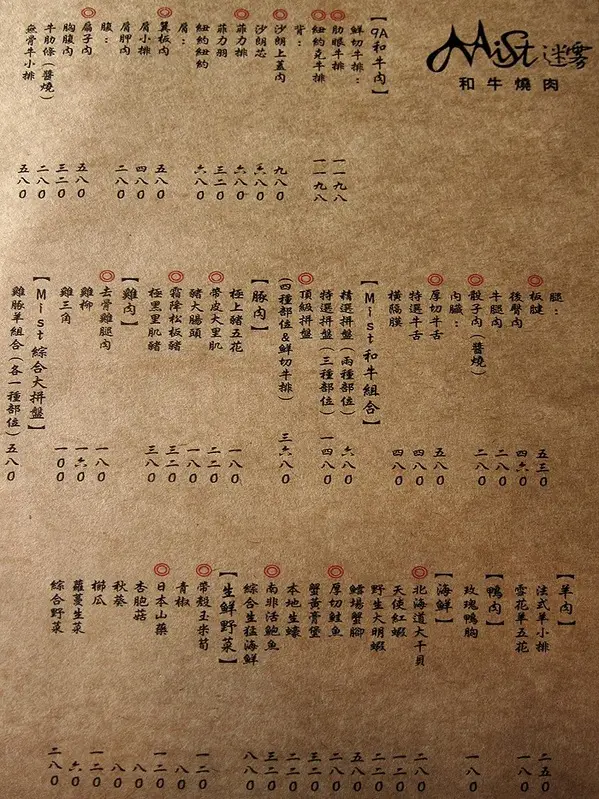 Mist 迷霧
和牛燒肉
【9A和牛肉】
鮮切牛排：
◎肋眼牛排 一一九八
◎紐約克牛排 一一九八
背：
◎沙朗上蓋肉 九八0
沙朗芯 六八0
◎菲力排 六八0
菲力羽 三二0
紐約紐約 六八0
肩：
◎翼板肉 五八0
肩小排 四八0
肩胛肉 二八0
腹：
◎扇子肉 五八0
胸腹肉 三二0
牛肋條（醬燒） 二八0
無骨牛小排 五八0
腿：
◎板腱 五三0
後臀肉 四六0
牛腿肉 二八0
◎骰子肉（醬燒） 二八0
內臟：
◎厚切牛舌 五八0
特選牛舌 四八0
橫隔膜 四八0
【Mist和牛組合】
精選拼盤（兩種部位） 六八0
特選拼盤（三種部位） 一四八0
◎頂級拼盤
（四種部位&鮮切牛排） 三六八0
【豚肉】
極上豬五花 一八0
◎帶皮大里肌 二二0
豬大腸頭 一八0
◎霜降松板豬 三二0
極黑里肌豬 三八0
【雞肉】
◎去骨雞腿肉 一八0
雞柳 一六0
雞三角 一00
【Mist綜合大拼盤】
雞豚羊組合（各一種部位） 五八0
【羊肉】
法式羊小排 二五0
雪花羊五花 一八0
【鴨肉】
玫瑰鴨胸 一八0
【海鮮】
◎北海道大干貝 二八0
天使紅蝦 一二0
野生大明蝦 二二0
鱈場蟹腳 五八0
◎厚切鮭魚 二八0
蟹黃膏堡 三二0
本地生蠔 二二0
◎南非活鮑魚 三二0
綜合生猛海鮮 八八0
【生鮮野菜】
◎帶殼玉米筍 一二0
青椒 八0
◎日本山藥 一二0
杏胞菇 八0
秋葵 八0
櫛瓜 一二0
蘿蔓生菜 六0
綜合野菜 二八0